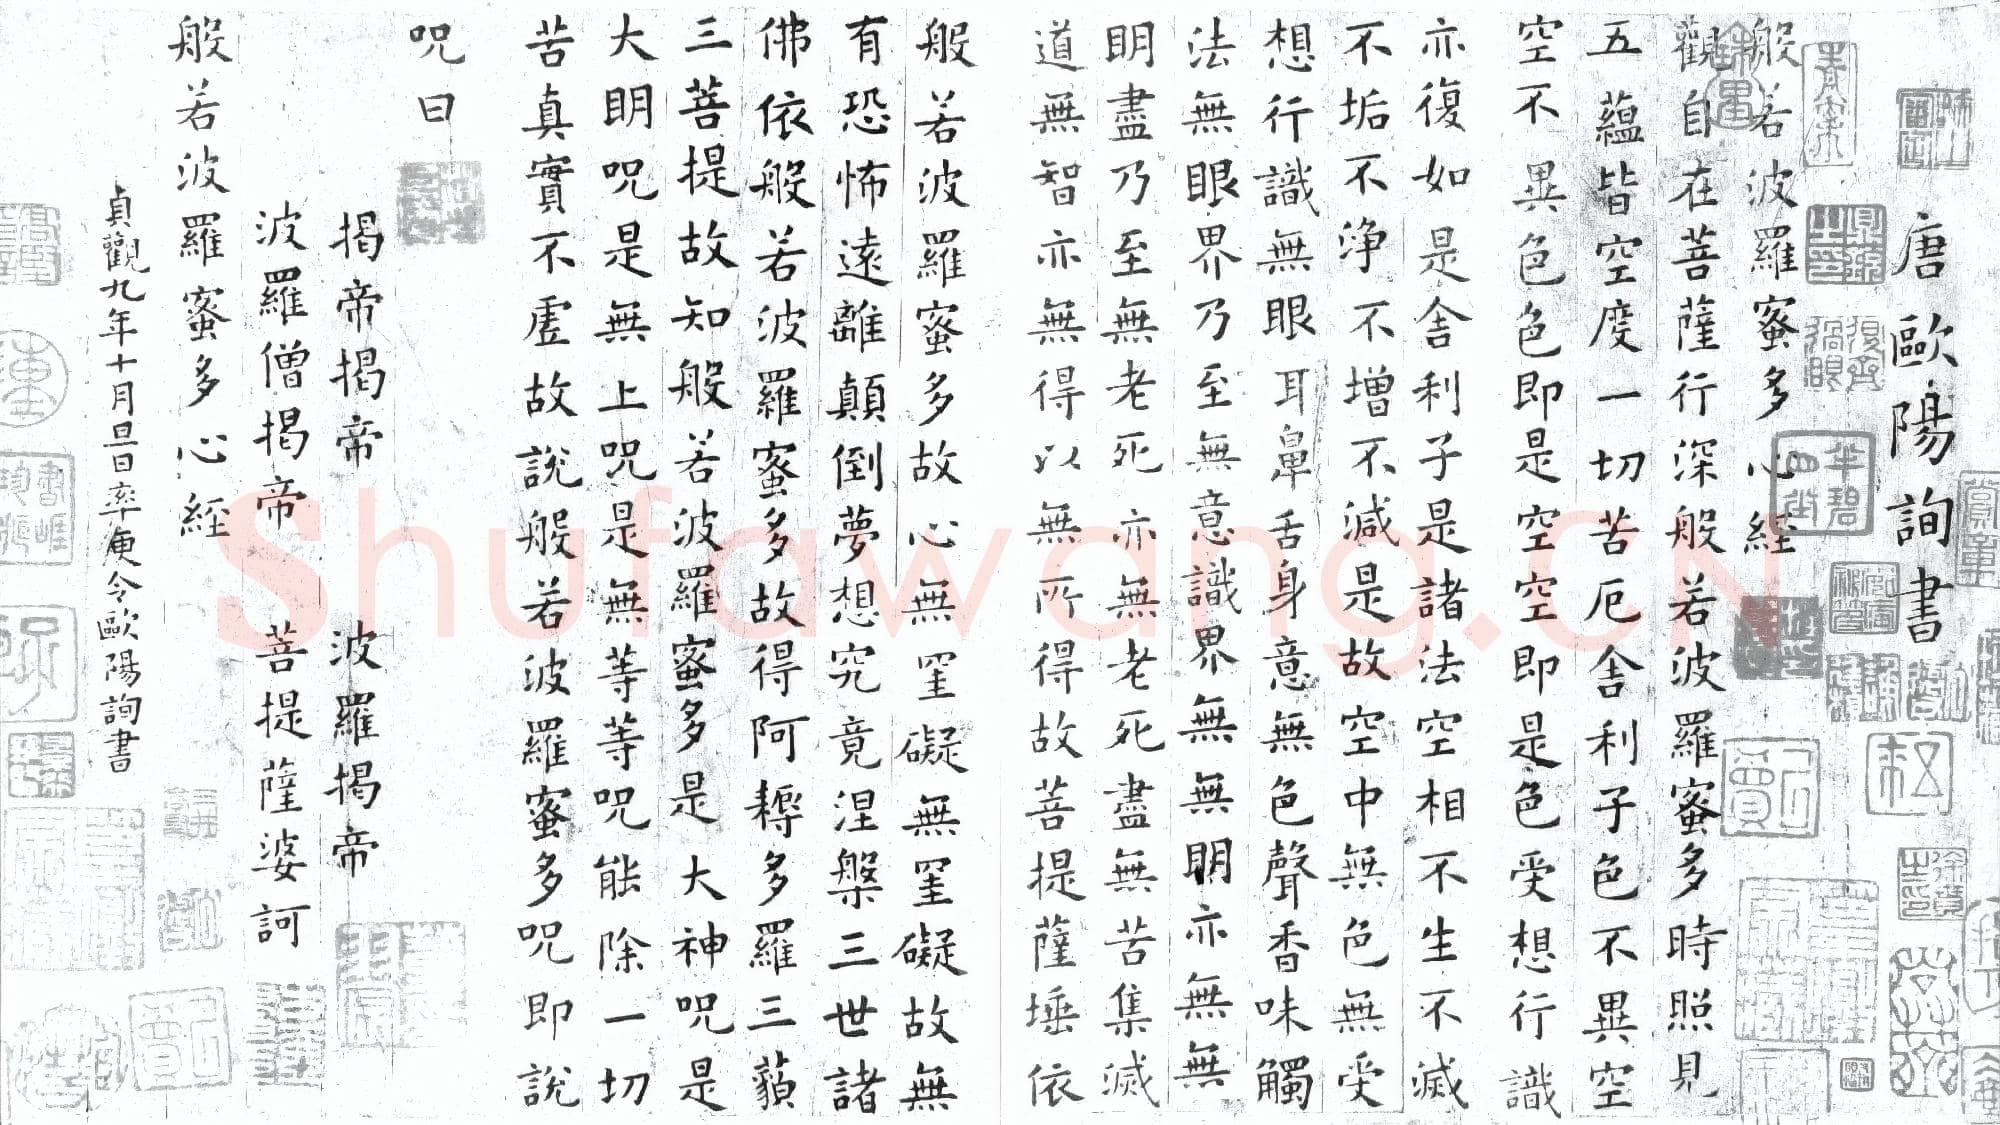 唐歐陽詢書
般若波羅蜜多心経
觀自在菩薩行深般若波羅蜜多時照見
五蘊皆空度一切苦厄舎利子色不異空
空不異色色即是空空即是色受想行識
亦復如是舎利子是諸法空相不生不滅
不垢不淨不增不減是故空中無色無受
想行識無眼耳鼻舌身意無色聲香味觸
法無眼界乃至無意識界無無明亦無無
明盡乃至無老死亦無老死盡無苦集滅
道無智亦無得以無所得故菩提薩埵依
般若波羅蜜多故心無罣礙無罣礙故無
有恐怖遠離顛倒夢想究竟涅槃三世諸
佛依般若波羅蜜多故得阿耨多羅三藐
三菩提故知般若波羅蜜多是大神呪是
大明呪是無上呪是無等等呪能除一切
苦真實不虛故說般若波羅蜜多呪即說
呪曰
揭帝揭帝 波羅揭帝
波羅僧揭帝 菩提薩婆訶
般若波羅蜜多心経
貞觀九年十月旦日率更令歐陽詢書
Shufawang.CN